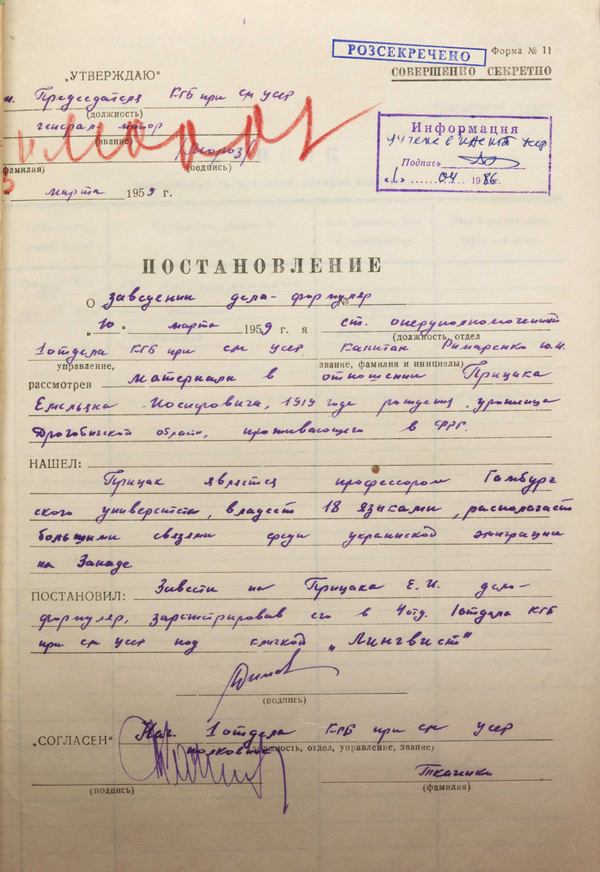 РОЗСЕКРЕЧЕНО
Форма № 11
СОВЕРШЕННО СЕКРЕТНО
„УТВЕРЖДАЮ“
Председателя КГБ при см УССР
(должность)
генерал майор
(звание)
(фамилия) (подпись)
марта 1959 г.
Информация
Подпись
«1» 04 1986
ПОСТАНОВЛЕНИЕ
О заведении дела-формуляр №
„10“ марта 1959 г. я ст. оперуполномоченный
(должность, отдел
1 отдела КГБ при см УССР капитан Римаренко Ю.И.
управление, звание, фамилия и инициалы)
рассмотрев материалы в отношении Прицака
Емельяна Иосифовича, 1919 года рождения, уроженца
Дрогобычской области, проживающего в ФРГ.
НАШЕЛ:
Прицак является профессором Гамбург
ского университета, владеет 18 языками, располагает
большими связями среди украинской эмиграции
на Западе
ПОСТАНОВИЛ: Завести на Прицака Е.И. дело-
формуляр, зарегистрировав его в 4 отд. 1 отдела КГБ
при см УССР под кличкой „Лингвист“
(подпись)
„СОГЛАСЕН“ Нач. 1 отдела КГБ при см УССР
полковник (должность, отдел, управление, звание)
(подпись)
Ткаченко
(фамилия)